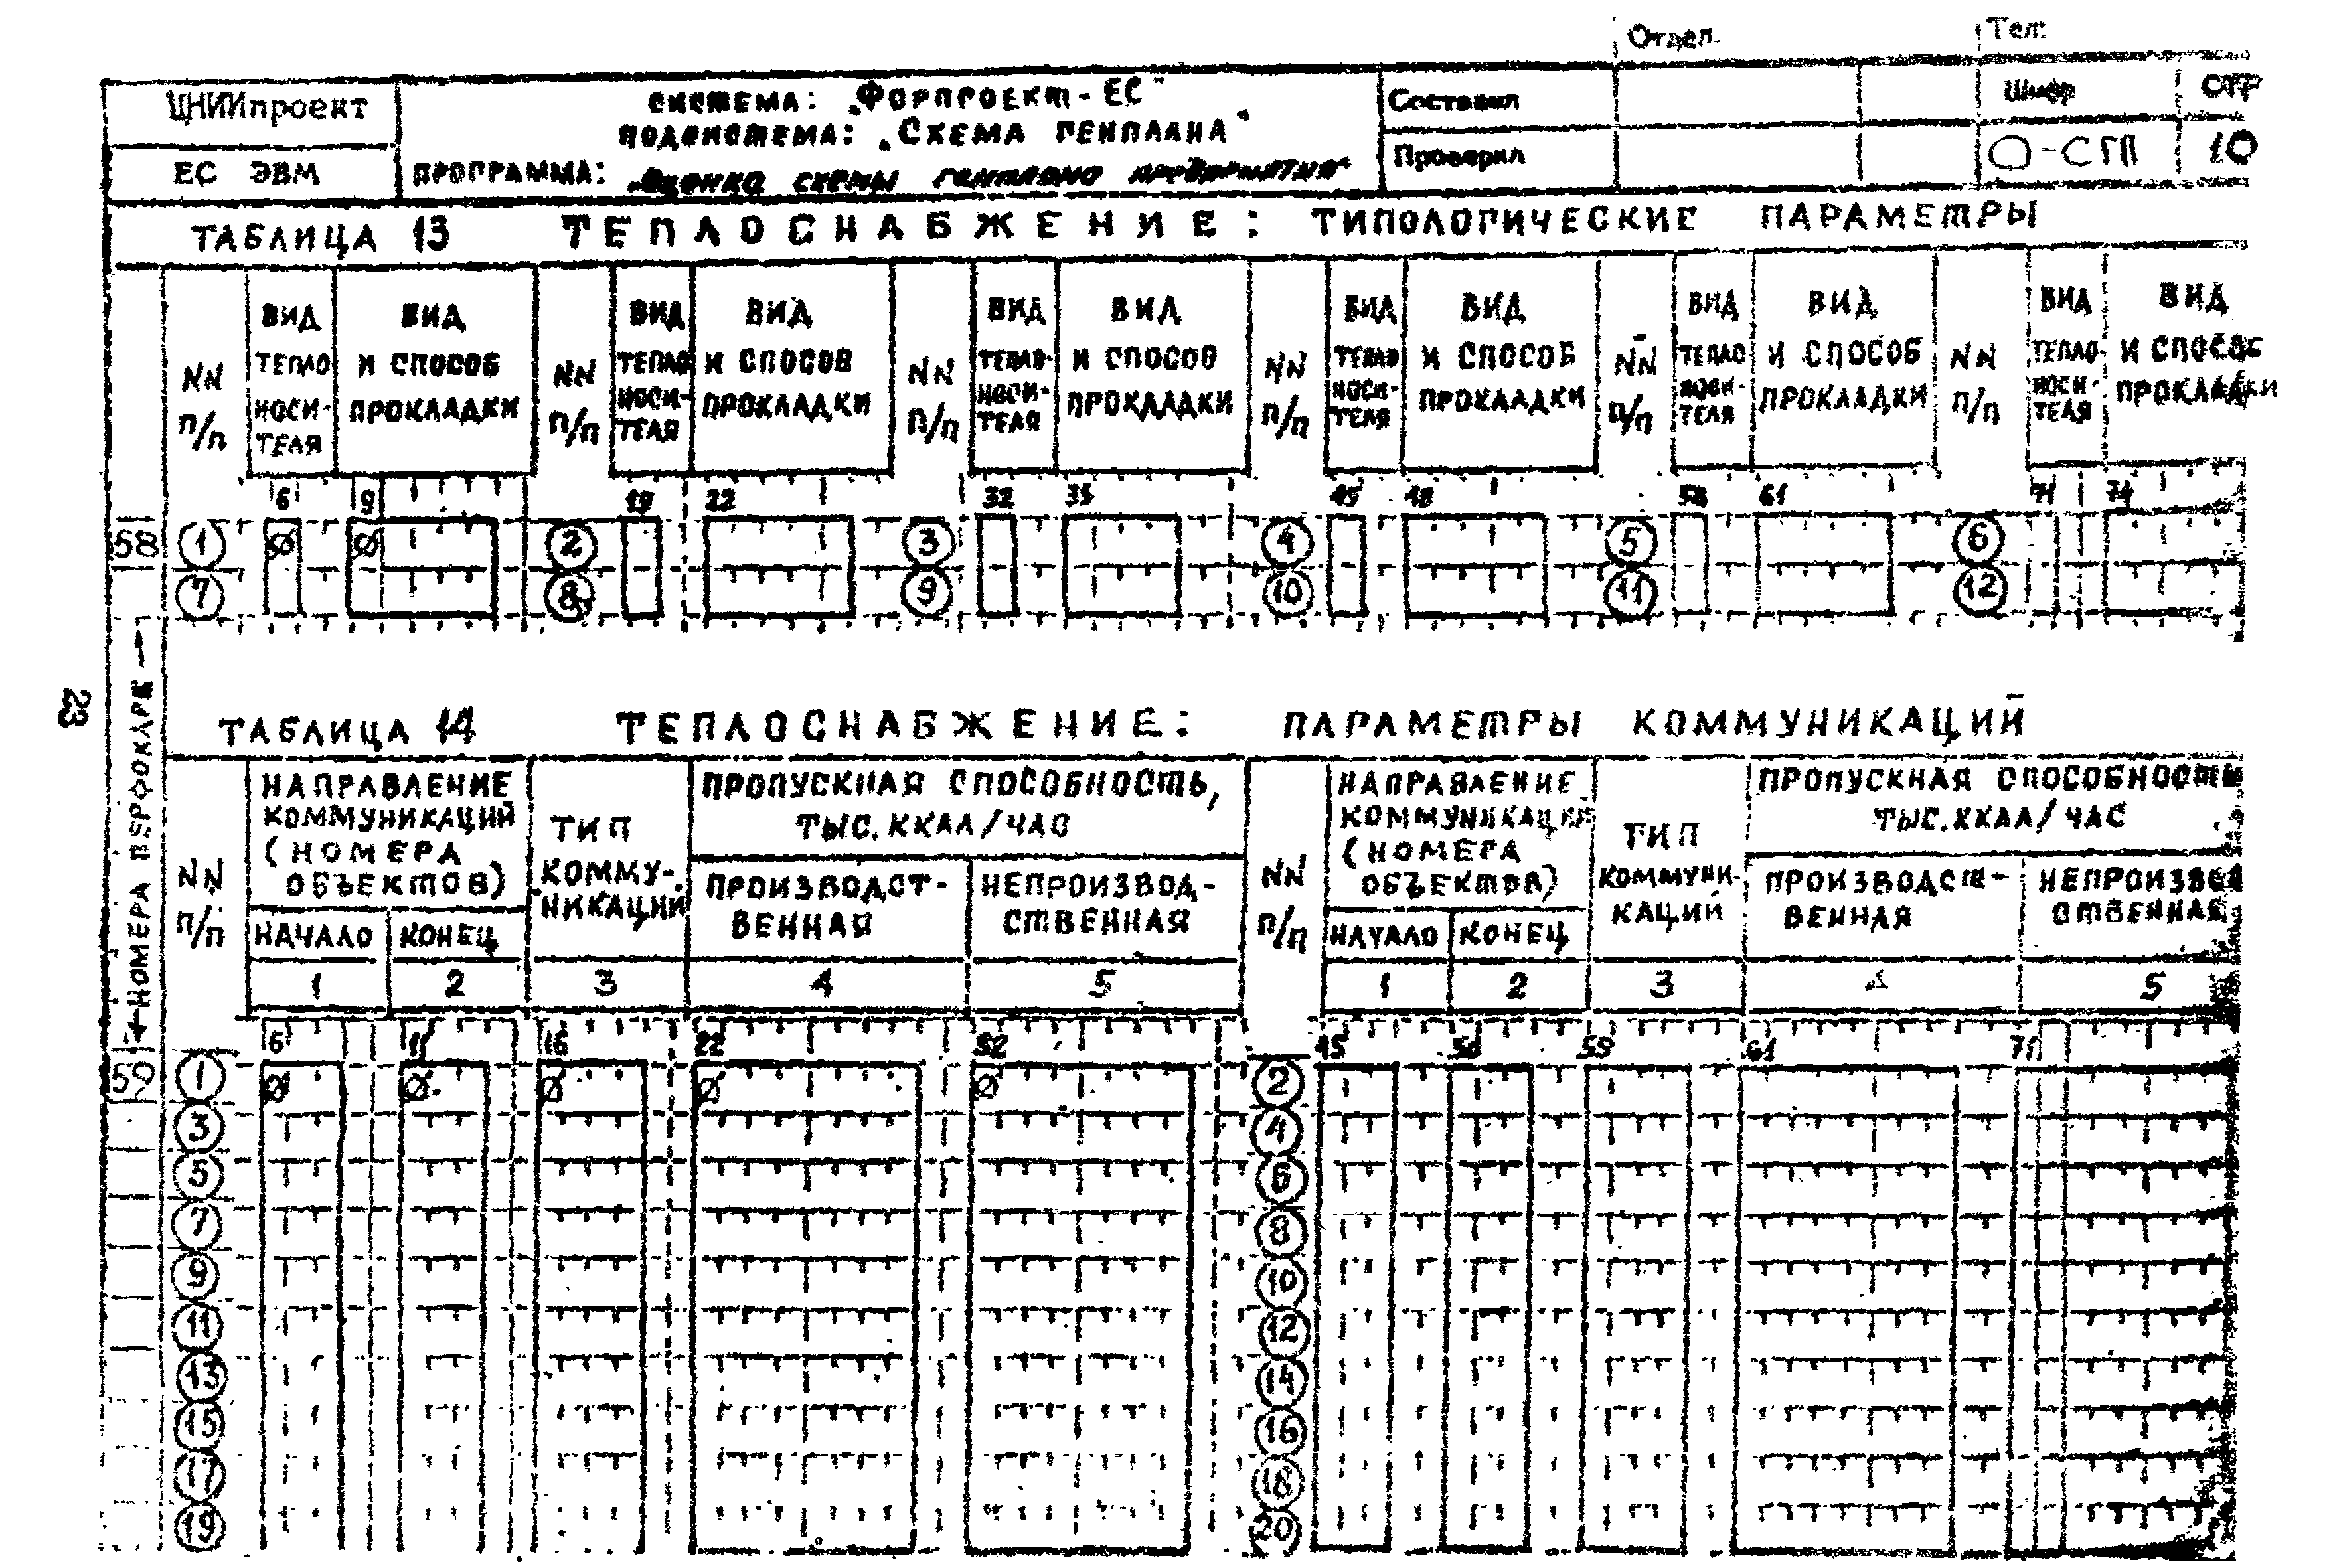 Отдел Тел:
ЦНИИпроект
СИСТЕМА: „ФОРПРОЕКТ-ЕС"
Составил
Шифр СТР
ПОДСИСТЕМА: „СХЕМА ГЕНПЛАНА"
ЕС ЭВМ
ПРОГРАММА: „Оценка схемы генплана предприятия"
Проверил
О-СГП 10
ТАБЛИЦА 13 ТЕПЛОСНАБЖЕНИЕ: ТИПОЛОГИЧЕСКИЕ ПАРАМЕТРЫ
NN П/П
ВИД ТЕПЛО НОСИ- ТЕЛЯ
ВИД И СПОСОБ ПРОКЛАДКИ
NN П/П
ВИД ТЕПЛО НОСИ- ТЕЛЯ
ВИД И СПОСОБ ПРОКЛАДКИ
NN П/П
ВИД ТЕПЛО- НОСИ- ТЕЛЯ
ВИД И СПОСОБ ПРОКЛАДКИ
NN П/П
ВИД ТЕПЛО НОСИ- ТЕЛЯ
ВИД И СПОСОБ ПРОКЛАДКИ
NN П/П
ВИД ТЕПЛО НОСИ- ТЕЛЯ
ВИД И СПОСОБ ПРОКЛАДКИ
NN П/П
ВИД ТЕПЛО- НОСИ- ТЕЛЯ
ВИД И СПОСОБ ПРОКЛАДКИ
6 9 19 22 32 35 45 48 58 61 71 74
58 1 Ø Ø 2 3 4 5 6
7 8 9 10 11 12
23
НОМЕРА ПЕРФОКАРТ
ТАБЛИЦА 14 ТЕПЛОСНАБЖЕНИЕ: ПАРАМЕТРЫ КОММУНИКАЦИЙ
NN П/П
НАПРАВЛЕНИЕ КОММУНИКАЦИЙ (НОМЕРА ОБЪЕКТОВ)
НАЧАЛО КОНЕЦ
ТИП КОММУ- НИКАЦИЙ
ПРОПУСКНАЯ СПОСОБНОСТЬ, ТЫС. ККАЛ/ЧАС
ПРОИЗВОДСТ- ВЕННАЯ
НЕПРОИЗВОД- СТВЕННАЯ
NN П/П
НАПРАВЛЕНИЕ КОММУНИКАЦИЙ (НОМЕРА ОБЪЕКТОВ)
НАЧАЛО КОНЕЦ
ТИП КОММУНИ- КАЦИЙ
ПРОПУСКНАЯ СПОСОБНОСТЬ ТЫС. ККАЛ/ЧАС
ПРОИЗВОДСТ- ВЕННАЯ
НЕПРОИЗВОД СТВЕННАЯ
1 2 3 4 5 1 2 3 4 5
6 11 16 22 32 45 50 55 61 71
59 1 Ø Ø Ø Ø Ø 2
3 4
5 6
7 8
9 10
11 12
13 14
15 16
17 18
19 20